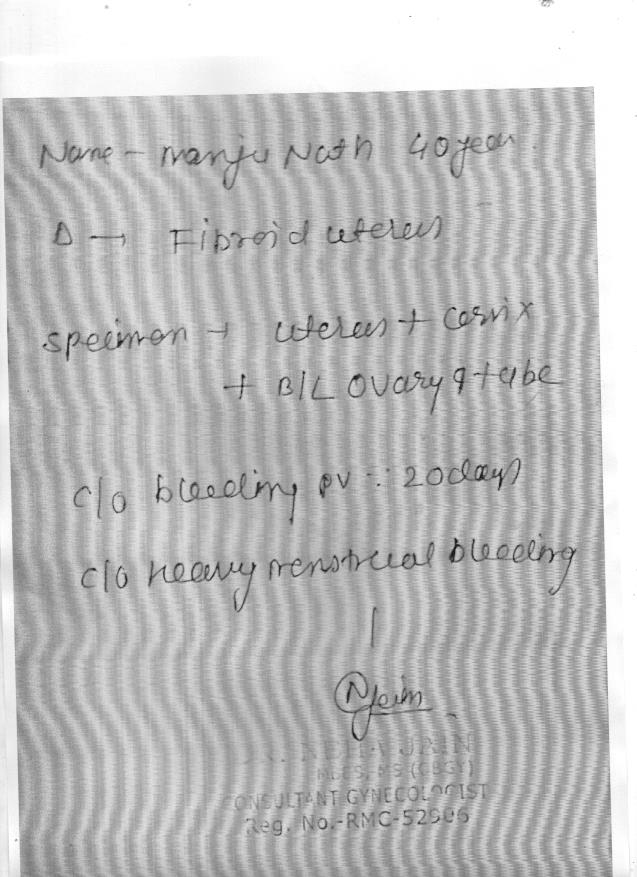 Name - Manju Nath 40 year.
Δ → Fibroid uterus
Specimen → uterus + cervix
+ B/L Ovary & tube
c/o bleeding pv ∵ 20 days
c/o heavy menstrual bleeding
NJain
DR. NEHA JAIN
MBBS, MS (OBGY)
CONSULTANT GYNECOLOGIST
Reg. No.-RMC-52906